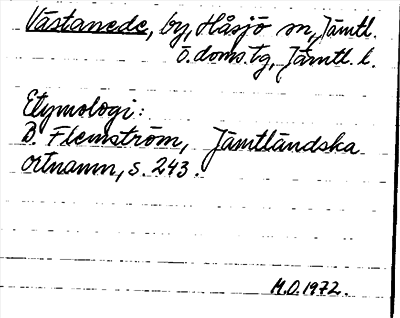 Västanede, by, Håsjö sn, Jämtl.
ö. doms.tg, Jämtl. l.
Etymologi:
B. Flemström, Jämtländska
ortnamn, s. 243.
M.O. 1972.